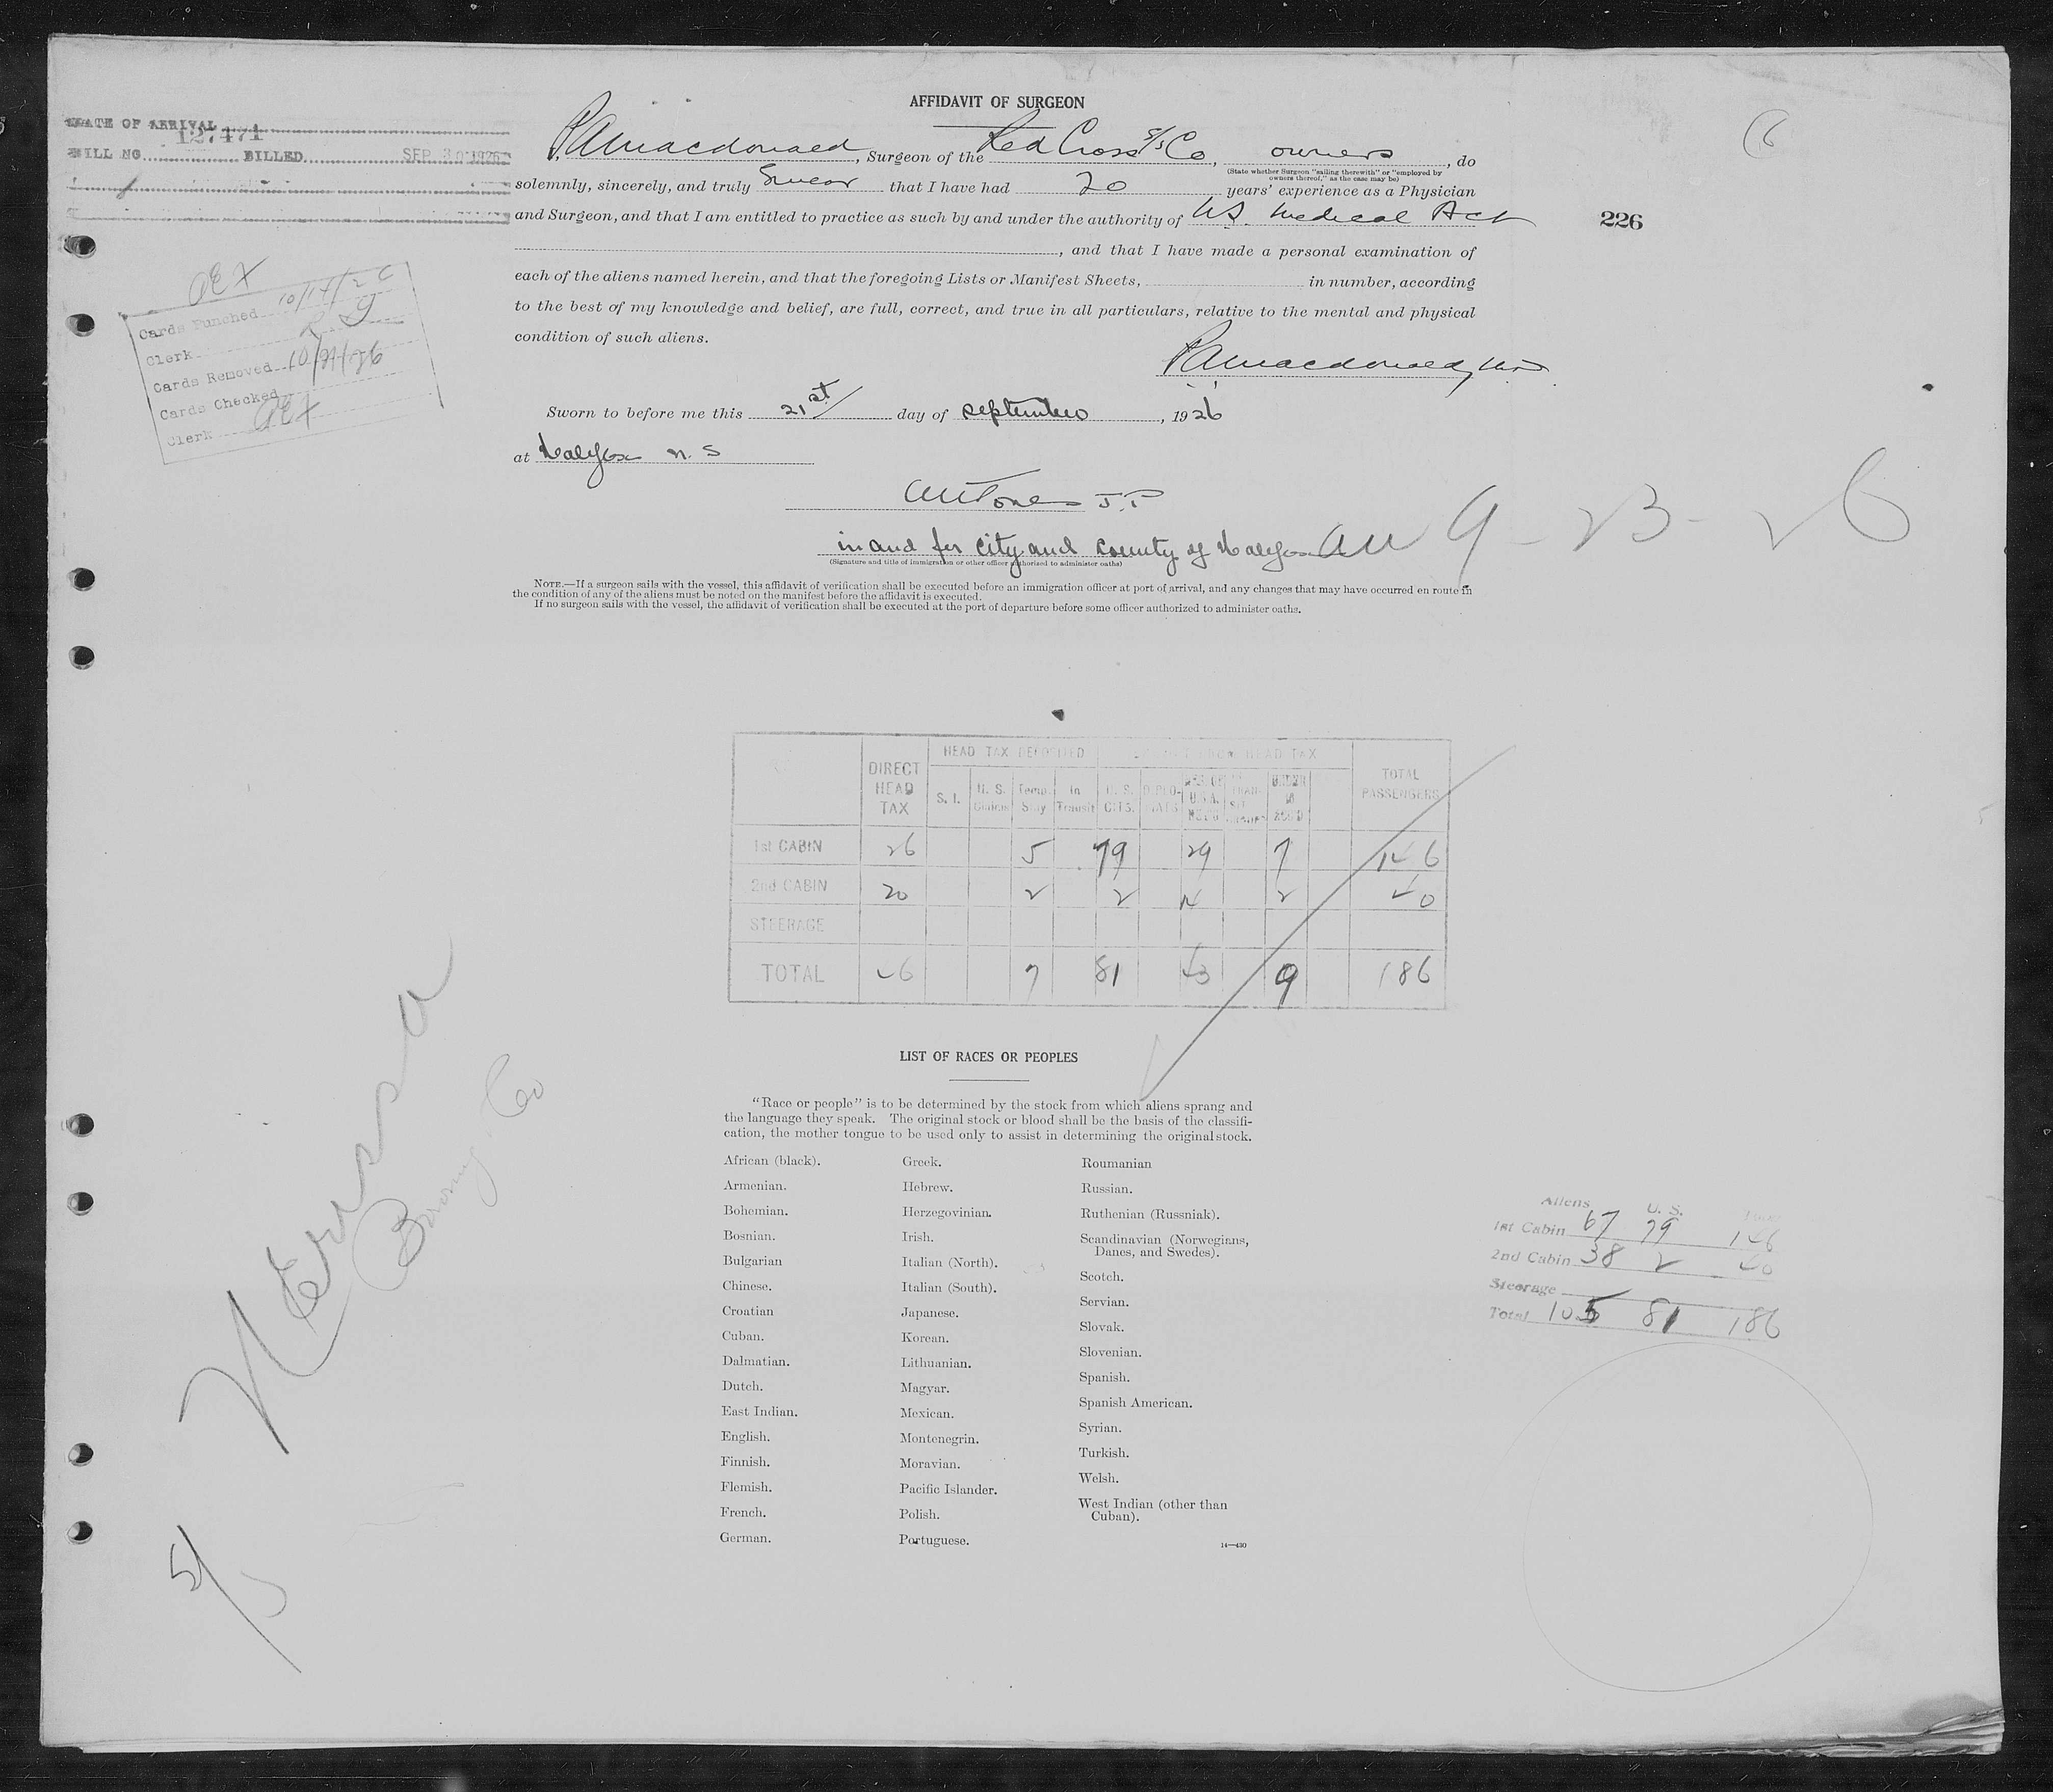 AFFIDAVIT OF SURGEON
DATE OF ARRIVAL
127471
BILL NO. BILLED SEP 30 1926
(6
226
PAMacdonald, Surgeon of the Red Cross S/S Co, owners, do
(State whether Surgeon "sailing therewith" or "employed by
owners thereof," as the case may be)
solemnly, sincerely, and truly Swear that I have had 20 years' experience as a Physician
and Surgeon, and that I am entitled to practice as such by and under the authority of N.S. Medical Act
, and that I have made a personal examination of
each of the aliens named herein, and that the foregoing Lists or Manifest Sheets, in number, according
to the best of my knowledge and belief, are full, correct, and true in all particulars, relative to the mental and physical
condition of such aliens.
PAMacdonald, MD
Cards Punched 10/14/26
Clerk
Cards Removed 10/21/26
Cards Checked
Clerk
Sworn to before me this 21st day of September, 1926
at Halifax N.S
J.P
in and for City and County of Halifax
9-23-26
(Signature and title of immigration or other officer authorized to administer oaths)
NOTE.—If a surgeon sails with the vessel, this affidavit of verification shall be executed before an immigration officer at port of arrival, and any changes that may have occurred en route in
the condition of any of the aliens must be noted on the manifest before the affidavit is executed.
If no surgeon sails with the vessel, the affidavit of verification shall be executed at the port of departure before some officer authorized to administer oaths.
HEAD TAX DEPOSITED HEAD TAX
DIRECT HEAD TAX S. I. U. S. Temp. Stay In Transit U. S. CITS. DIPLO-MATS UNDER 16 TOTAL PASSENGERS
1st CABIN 26 5 79 29 7 146
2nd CABIN 20 2 2 14 2 40
STEERAGE
TOTAL 46 7 81 43 9 186
Nerissa
Bowring & Co
5/
LIST OF RACES OR PEOPLES
"Race or people" is to be determined by the stock from which aliens sprang and
the language they speak. The original stock or blood shall be the basis of the classifi-
cation, the mother tongue to be used only to assist in determining the original stock.
African (black).
Armenian.
Bohemian.
Bosnian.
Bulgarian
Chinese.
Croatian
Cuban.
Dalmatian.
Dutch.
East Indian.
English.
Finnish.
Flemish.
French.
German.
Greek.
Hebrew.
Herzegovinian.
Irish.
Italian (North).
Italian (South).
Japanese.
Korean.
Lithuanian.
Magyar.
Mexican.
Montenegrin.
Moravian.
Pacific Islander.
Polish.
Portuguese.
Roumanian
Russian.
Ruthenian (Russniak).
Scandinavian (Norwegians,
Danes, and Swedes).
Scotch.
Servian.
Slovak.
Slovenian.
Spanish.
Spanish American.
Syrian.
Turkish.
Welsh.
West Indian (other than
Cuban).
14—430
Aliens U. S.
1st Cabin 67 79 146
2nd Cabin 38 2 40
Steerage
Total 105 81 186